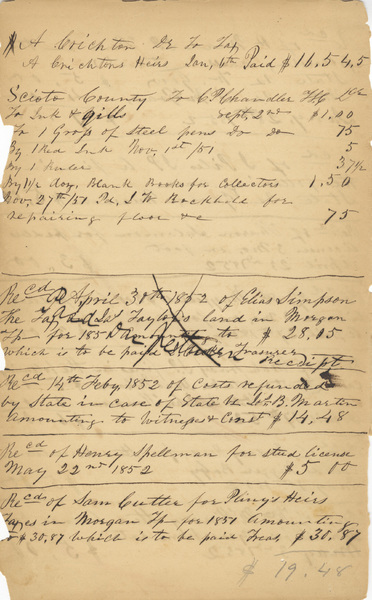 A Crichton Dr To Tax
A Crichtons Heirs Jan, 6th Paid $16.54,5
Scioto County To C P Chandler Dr
To Ink & Quills Sept, 2nd $1.00
To 1 Gross of Steel pens Do do 75
By 1 Red Ink Nov, 1st/51 5
By 1 Ruler 37½
By 1½ doz, Blank Books for Collectors 1.50
Nov, 27th/51 Pd, J W Rockhill for
repairing floor &c 75
Recd April 30th 1852 of Elias Simpson
the Tax on Taylor's land in Morgan
Tp for 185 amounting to $28,05
which is to be paid Treasurer
Receipt
Recd 14th Feby, 1852 of Costs refunded
by State in case of State vs Js B, Martin
amounting to Witness & Const $14,48
Recd of Henry Spellman for stud license
May 22nd 1852 $5 00
Recd of Sam Cutler for Pliny's Heirs
Taxes in Morgan Tp for 1851 amounting
to $30,87 which is to be paid Treas, $30.87
$ 19.48